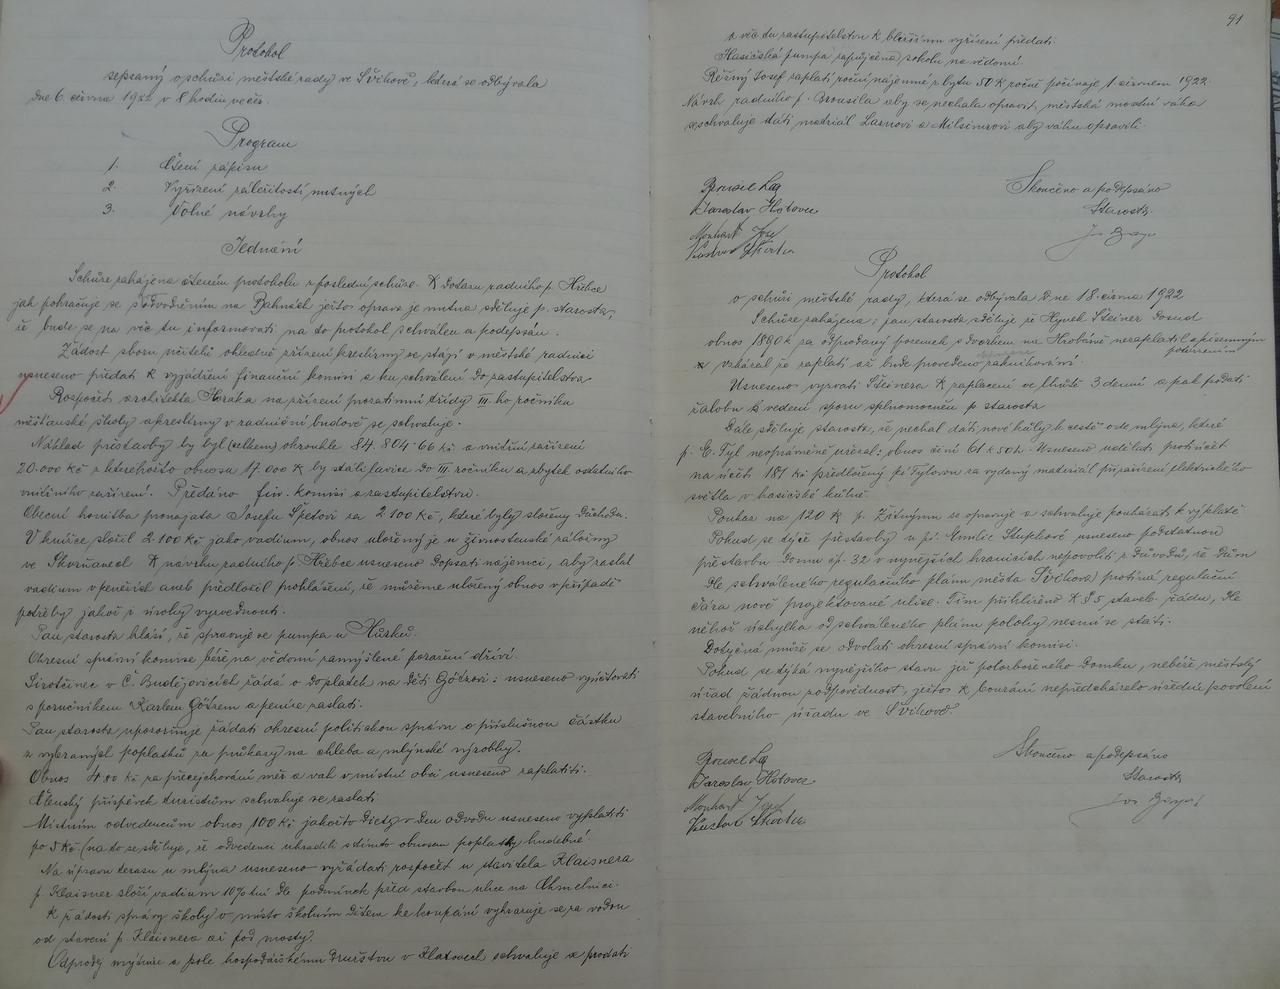 Protokol
sepsaný o schůzi městské rady ve Švihově, která se odbývala
dne 6. června 1922 v 8 hodin večer.
Program
1. Čtení zápisu
2. Vyřízení záležitostí nutných
3. Volné návrhy
Jednání
Schůze zahájena čtením protokolu z poslední schůze. K dotazu radního p. Hřebce
jak pokračuje se s odvodněním na Bahnách ježto oprava je nutna sděluje p. starosta,
že bude se na věc tu informovati na to protokol schválen a podepsán.
Žádost sboru učitelů ohledně zřízení kreslírny se stáji v městské radnici
usneseno předati k vyjádření finanční komisi a ku schválení do zastupitelstva
Rozpočet architekta Horáka na zřízení prozatimní třídy III. ho ročníku
měšťanské školy a kreslírny v radniční budově se schvaluje.
Náklad přestavby by byl (celkem) okrouhle 84.804·66 Kč a vnitřní zařízení
20.000 Kč z kteréhožto obnosu 17.000 K by stáli lavice do III. ročníku a zbytek ostatního
vnitřního zařízení. Předáno fin. komisi a zastupitelstvu.
Obecní honitba pronajata Josefu Špetovi za 2100 Kč, které byly složeny důchodu.
V knížce složil 2100 Kč jako vadium, obnos uložený je u živnostenské záložny
ve Skočicích K návrhu radního p. Hřebce usneseno dopsati nájemci, aby zaslal
vadium v penězích aneb předložil prohlášení, že můžeme uložený obnos v případě
potřeby jakož i úroky vyzvednouti.
Pan starosta hlásí, že spravuje se pumpa u Hůrků.
Okresní správní komise béře na vědomí zamýšlené poražení dříví.
Sirotčinec v Č. Budějovicích žádá o doplatek na děti Götzovi: usneseno vyúčtovati
s poručníkem Karlem Götzem a peníze zaslati.
Pan starosta upozorňuje žádati okresní politickou správu o příslušnou částku
z vybraných poplatků za průkazy na chleba a mlýnské výrobky.
Obnos 480 Kč za přecejchování měr a vah v místní obci usneseno zaplatiti.
Členský příspěvek turistům schvaluje se zaslati
Místním odvedencům obnos 100 Kč jakožto diety v den odvodu usneseno vyplatiti
po 5 Kč (na to se sděluje, že odvedenci uhradili s tímto obnosem poplatky hudebné.
Na úpravu terasu u mlýna usneseno vyžádati rozpočet u stavitela Klaisnera
p. Klaisner složí vadium 10% tní dle podmínek před stavbou ulice na Chmelnici.
K žádosti správy školy o místo školním dětem ke koupání vyhrazuje se za vodou
od stavení p. Klaisnera až pod mosty.
Odprodej mýtnice a pole hospodářskému družstvu v Klatovech schvaluje se prodati
91
a věc tu zastupitelstvu k bližšímu vyřízení předati.
Hasičská pumpa zapůjčena sokolu na vědomí
Řežný Josef zaplatí roční nájemné z bytu 50 K ročně počínaje 1. červnem 1922.
Návrh radního p. Brousila aby se nechala opravit městská mostní váha
se schvaluje dáti materiál Lasnovi a Milsimrovi aby váhu opravili.
Skončeno a podepsáno
Starosta
Jaroslav Hotovec
Monhart Josef
Protokol
o schůzi městské rady, která se odbývala dne 18. června 1922
Schůze zahájena: pan starosta sděluje že Hynek Steiner dosud
obnos 1880 K za odprodaný pozemek s dvorkem na Hrobárně nezaplatil a písemným potvrzením
vzkázal že zaplatí až bude provedeno zaknihování.
Usneseno vyzvati Steinera k zaplacení ve lhůtě 3 denní a pak podati
žalobu k vedení sporu splnomocněn p. starosta
Dále sděluje starosta, že nechal dáti nové kůly k cestě ode mlýna, které
p. E. Tyl neoprávněně uřezal: obnos činí 61 K 50 h. Usneseno udělati protiúčet
na účet 181 Kč předložený p. Tylovou za vydaný materiál při zařízení elektrického
světla v hasičské kůlně.
Poukaz na 120 K p. Zitnýmu se opravuje a schvaluje poukázati k výplatě
Pokud se týče přestavby u pí. Emilie Stupkové usneseno podstatnou
přestavbu domu čp. 32 v nynějších hranicích nepovoliti z důvodů, že dům
dle schváleného regulačního plánu města Švihova protíná regulační
čára nově projektované ulice. Tím přihlíženo k § 5 staveb. řádu, dle
něhož úchylka od schváleného plánu polohy nesmí se státi.
Dotyčná může se odvolati okresní správní komisi.
Pokud se týká nynějšího stavu již polozbořeného domku, nebéře městský
úřad žádnou zodpovědnost, ježto k bourání nepředcházelo úřední povolení
stavebního úřadu ve Švihově.
Skončeno a podepsáno
Starosta
Jaroslav Hotovec
Monhart Josef